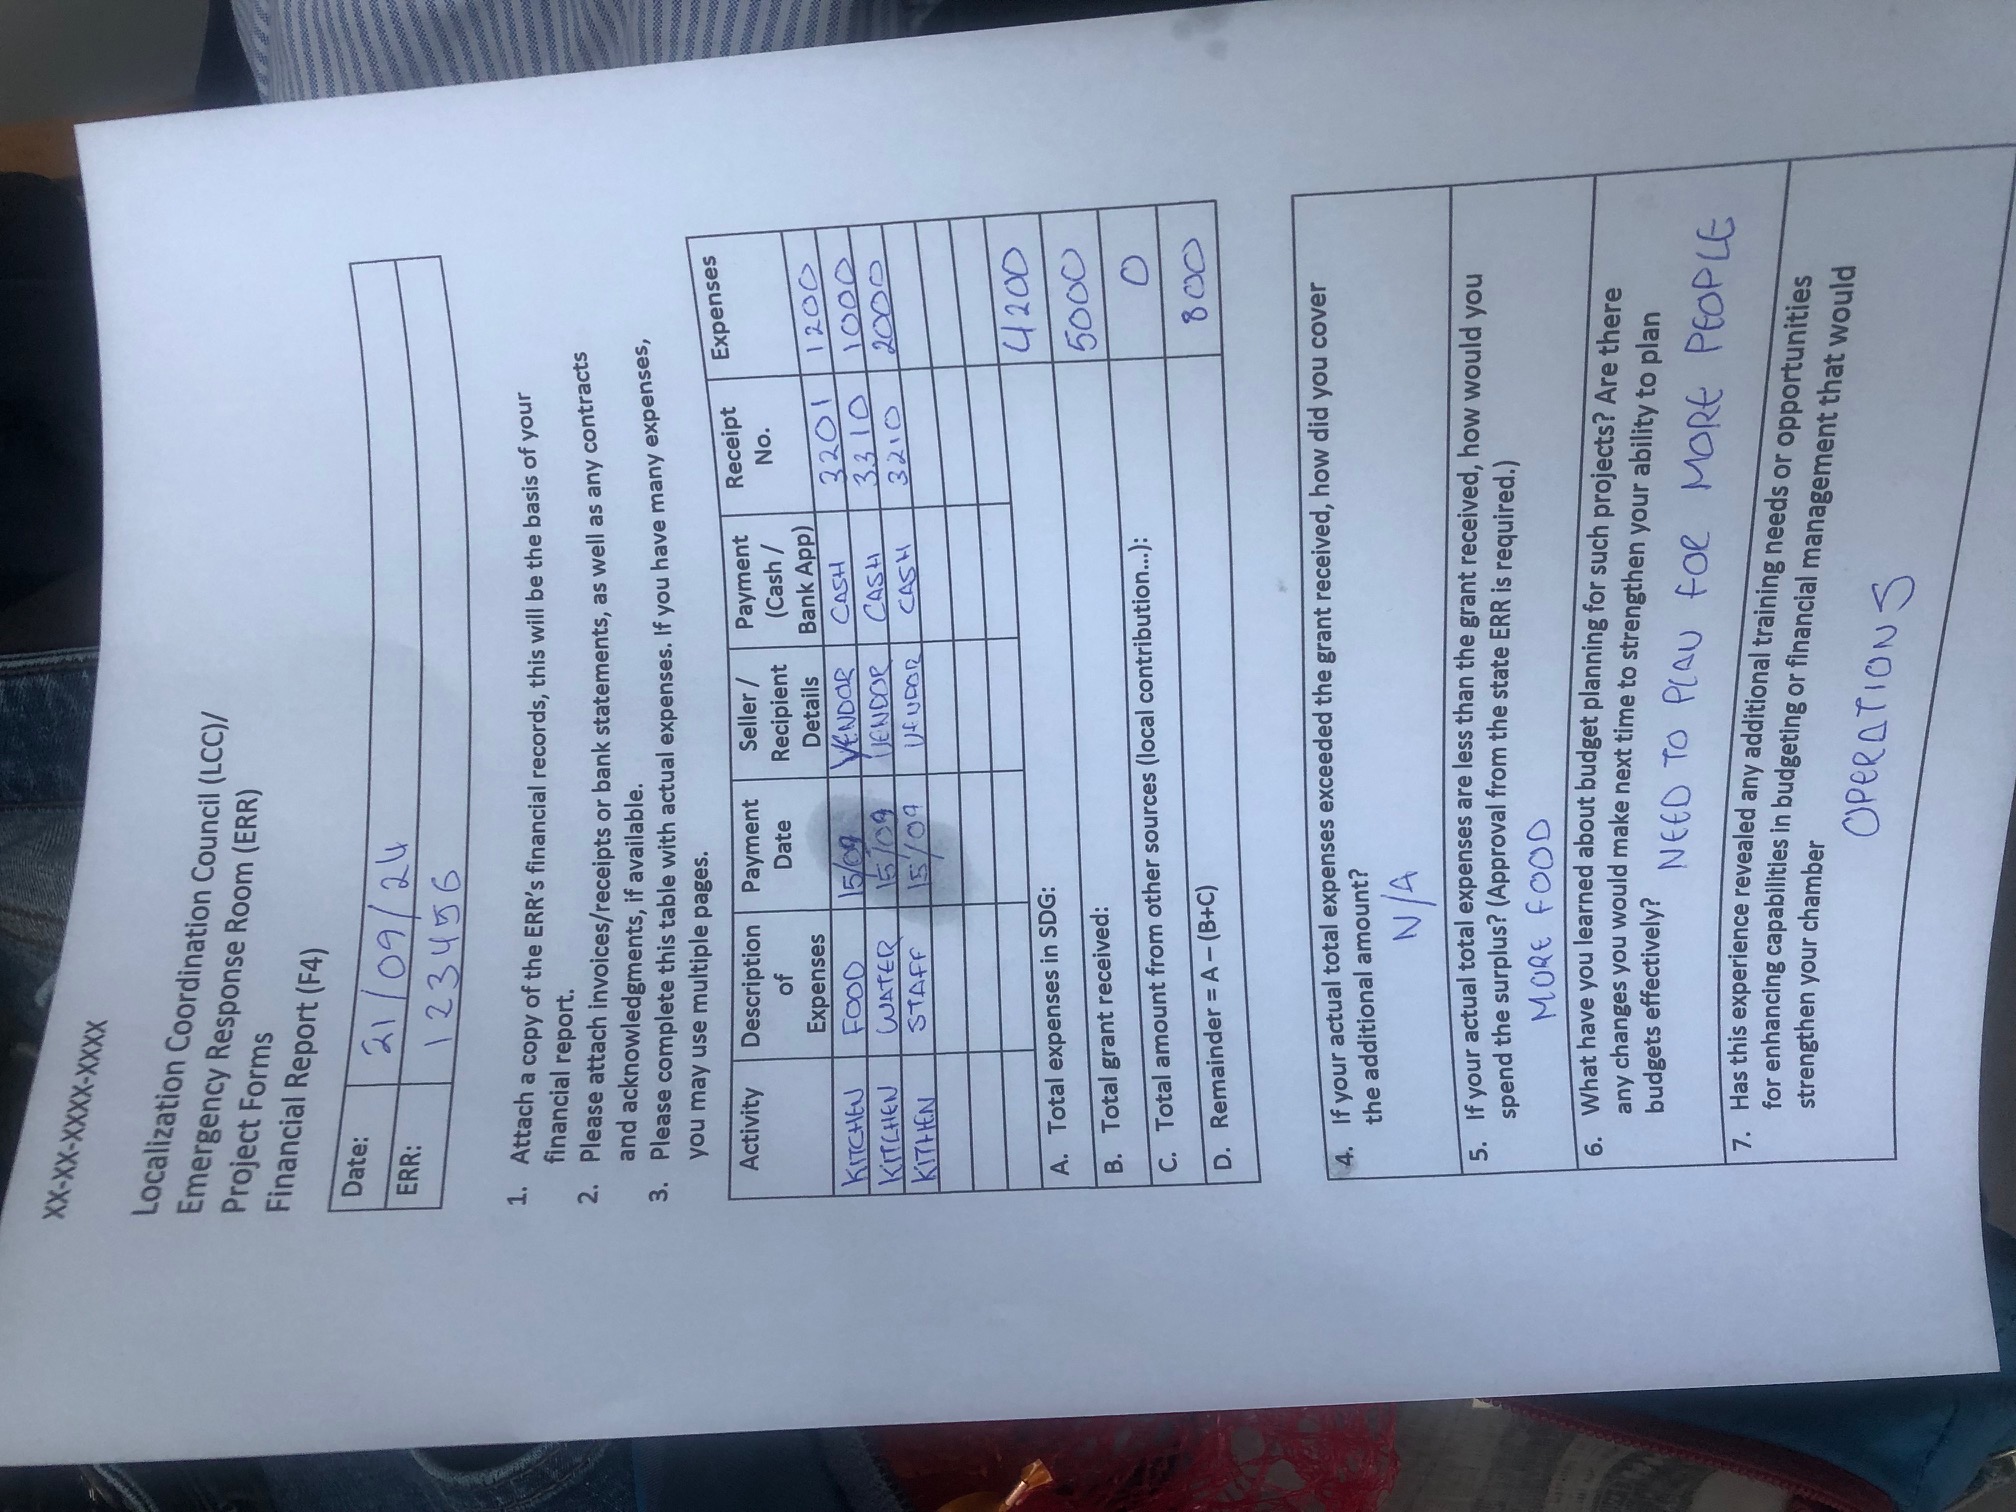 XX-XX-XXXX-XXXX
Localization Coordination Council (LCC)/
Emergency Response Room (ERR)
Project Forms
Financial Report (F4)
Date: 21/09/24
ERR: 123456
1. Attach a copy of the ERR's financial records, this will be the basis of your
financial report.
2. Please attach invoices/receipts or bank statements, as well as any contracts
and acknowledgments, if available.
3. Please complete this table with actual expenses. If you have many expenses,
you may use multiple pages.
Activity Description of Expenses Payment Date Seller / Recipient Details Payment (Cash / Bank App) Receipt No. Expenses
KITCHEN FOOD 15/09 VENDOR CASH 3201 1200
KITCHEN WATER 15/09 VENDOR CASH 3310 1000
KITHEN STAFF 15/09 VENDOR CASH 3210 2000
A. Total expenses in SDG: 4200
B. Total grant received: 5000
C. Total amount from other sources (local contribution...): 0
D. Remainder = A – (B+C) 800
4. If your actual total expenses exceeded the grant received, how did you cover
the additional amount?
N/A
5. If your actual total expenses are less than the grant received, how would you
spend the surplus? (Approval from the state ERR is required.)
MORE FOOD
6. What have you learned about budget planning for such projects? Are there
any changes you would make next time to strengthen your ability to plan
budgets effectively?
NEED TO PLAN FOR MORE PEOPLE
7. Has this experience revealed any additional training needs or opportunities
for enhancing capabilities in budgeting or financial management that would
strengthen your chamber
OPERATIONS